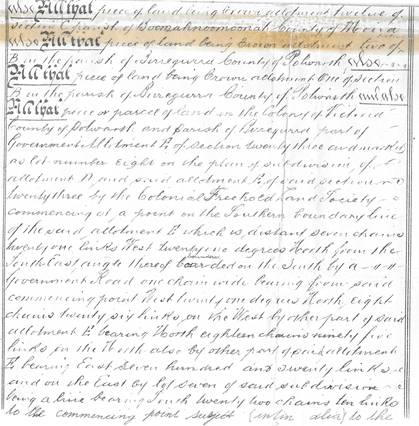 also All that piece of land being Crown allotment twelve of
section E parish of Boonahnoomoonah County of Mornington
also All that piece of land being Crown allotment two of
B in the parish of Birregurra County of Polwarth also
All that piece of land being Crown allotment One of section
B in the parish of Birregurra County of Polwarth and also
All that piece or parcel of land in the Colony of Victoria
County of Polwarth and parish of Birregurra part of
Government Allotment E of section twenty three and marked
as lot number eight on the plan of subdivision of
allotment and said allotment E of said section
twenty three by the Colonial Freehold Land Society
commencing at a point on the Southern boundary line
of the said allotment E which is distant seven chains
twenty one links West twenty one degrees North from the
South East angle thereof bounded on the South by a
Government Road one chain wide bearing from said
commencing point West twenty one degrees North eight
chains twenty six links on the West by other part of said
allotment E bearing North eighteen chains ninety five
links on the North also by other part of said allotment
E bearing East Seven hundred and seventy links
and on the East by lot seven of said subdivision
being a line bearing South twenty two chains ten links
to the commencing point subject (inter alia) to the